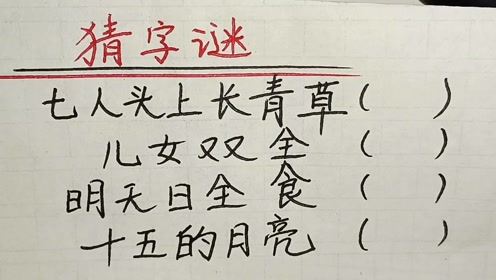 猜字谜
七人头上长青草( )
儿女双全 ( )
明天日全食 ( )
十五的月亮 ( )